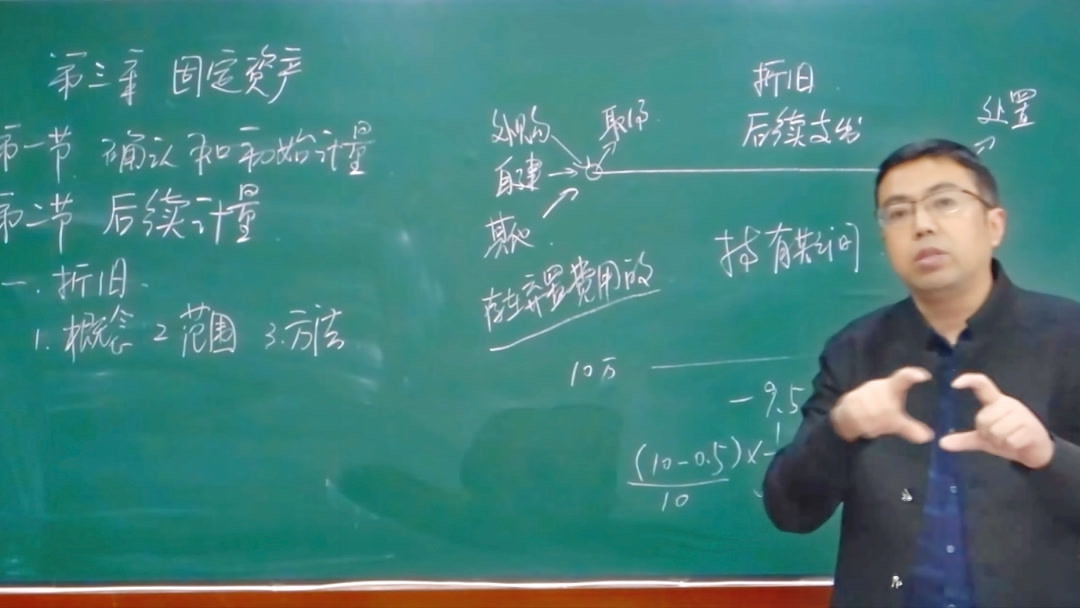 第三章 固定资产
第一节 确认和初始计量
第二节 后续计量
一. 折旧.
1. 概念 2 范围 3.方法
外购
自建
其他.
取得
折旧
后续支出
处置
持有期间
存在弃置费用的
10万
-9.5
(10-0.5)×1
10